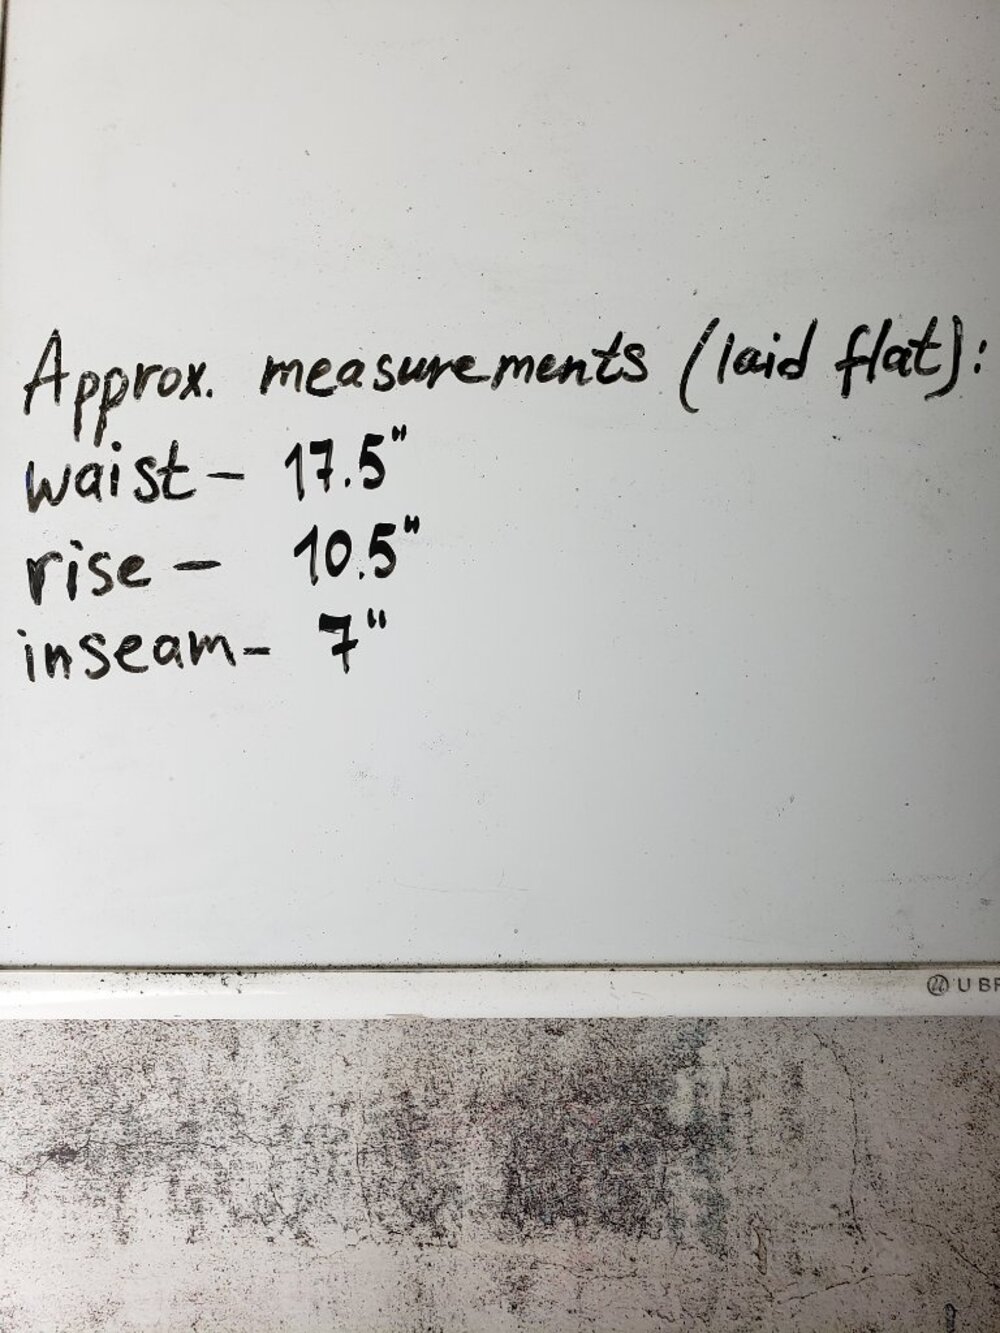 Approx. measurements (laid flat):
waist - 17.5"
rise - 10.5"
inseam - 7"
U